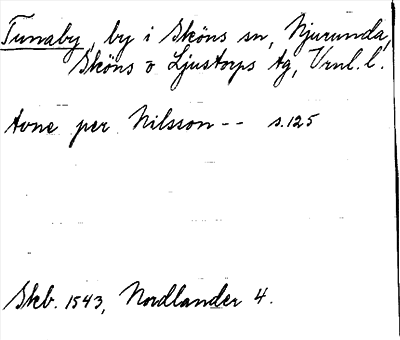 Tunaby, by i Sköns sn, Njurunda,
Sköns o Ljustorps tg, Vrnl. l.
tvne per Nilsson -- s. 125
Skb. 1543, Nordlander 4.